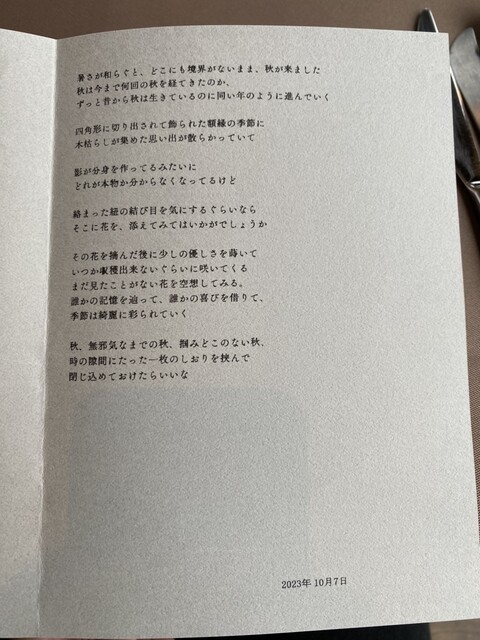 暑さが和らぐと、どこにも境界がないまま、秋が来ました
秋は今まで何回の秋を経てきたのか、
ずっと昔から秋は生きているのに同い年のように進んでいく
四角形に切り出されて飾られた額縁の季節に
木枯らしが集めた思い出が散らかっていて
影が分身を作ってるみたいに
どれが本物か分からなくなってるけど
絡まった紐の結び目を気にするぐらいなら
そこに花を、添えてみてはいかがでしょうか
その花を摘んだ後に少しの優しさを蒔いて
いつか収穫出来ないぐらいに咲いてくる
まだ見たことがない花を空想してみる。
誰かの記憶を辿って、誰かの喜びを借りて、
季節は綺麗に彩られていく
秋、無邪気なまでの秋、掴みどこのない秋、
時の隙間にたった一枚のしおりを挟んで
閉じ込めておけたらいいな
2023年10月7日